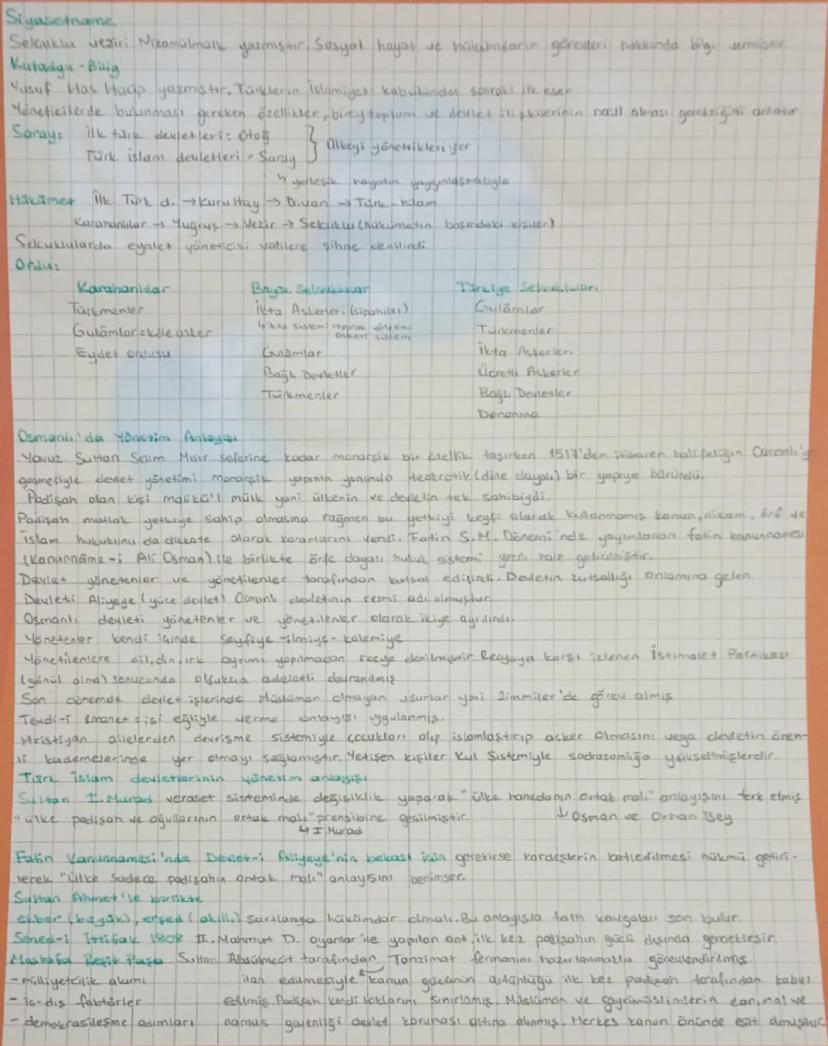 Siyasetname
Selçuklu veziri Nizamülmülk yazmıştır. Sosyal hayat ve hükümdarın görevleri hakkında bilgi vermiştir.
Kutadgu-Bilig
Yusuf Has Hacip yazmıştır. Türklerin İslamiyet kabulünden sonraki ilk eser
Yöneticilerde bulunması gereken özellikler, birey toplum ve devlet ilişkilerinin nasıl olması gerektiğini anlatır
Saray: ilk türk devletleri: Otağ } ülkeyi yönettikleri yer
Türk islam devletleri: Saray
↳ yerleşik hayatın yaygınlaşmasıyla
Hükümet İlk Türk d. → Kurultay → Divan → Türk-islam
Karahanlılar → Yuğruş → Vezir → Selçuklu (hükümetin başındaki kişiler)
Selçuklularda eyalet yöneticisi valilere şihne denilirdi.
Ordu:
Karahanlılar Büyük Selçuklular Türkiye Selçukluları
Türkmenler İkta Askerleri (sipahiler) Gulâmlar
Gulâmlar: köle asker ↳ikta sistemi: toprak yönetimi askeri sistem Türkmenler
Eyalet ordusu Gulâmlar İkta Askerleri
Bağlı Devletler Ücretli Askerler
Türkmenler Bağlı Devletler
Donanma
Osmanlı'da Yönetim Anlayışı
Yavuz Sultan Selim Mısır seferine kadar monarşik bir özellik taşırken 1517'den itibaren halifeliğin Osmanlı'ya
geçmesiyle devlet yönetimi monarşik yapının yanında teokratik (dine dayalı) bir yapıya büründü.
Padişah olan kişi malikü'l mülk yani ülkenin ve devletin tek sahibiydi.
Padişah mutlak yetkiye sahip olmasına rağmen bu yetkiyi keyfi olarak kullanmamış kanun, nizam, örf ve
islam hukukunu da dikkate alarak kararlarını verdi. Fatih S.M. Dönemi'nde yayımlanan fatih kanunnamesi
(Kanunnâme-i Ali Osman) ile birlikte örfe dayalı hukuk sistemi yazılı hale getirilmiştir.
Devlet yönetenler ve yönetilenler tarafından kutsal edilirdi. Devletin kutsallığı anlamına gelen
Devleti Aliyeye (yüce devlet) Osmanlı devletinin resmi adı olmuştur.
Osmanlı devleti yönetenler ve yönetilenler olarak ikiye ayrılırdı.
Yönetenler kendi içinde seyfiye-ilmiye-kalemiye
Yönetilenlere dil, din, ırk ayrımı yapılmadan reaya denilmiştir Reayaya karşı izlenen İstimalet Politikası
(gönül alma) sonucunda adaletli davranılmış
Son dönemde devlet işlerinde Müslüman olmayan unsurlar yani Zimmiler'de görev almış
Tevdi-i emanet = işi ehliyle verme anlayışı uygulanmış.
Hristiyan ailelerden devrişme sistemiyle çocukları alıp islamlaştırıp asker olmasını veya devletin önem-
li kademelerinde yer olmayı sağlamıştır. Yetişen kişiler Kul Sistemiyle sadrazamlığa yükselmişlerdir.
Türk islam devletlerinin yönetim anlayışı
Sultan I. Murad veraset sisteminde değişiklik yaparak "ülke hanedanın ortak malı" anlayışını terk etmiş
"ülke padişah ve oğullarının ortak malı" prensibine geçilmiştir ↳ Osman ve Orhan Bey
↳ I. Murad
Fatih Kanunnamesi'nde Devlet-i Aliyeye'nin bekası için gerekirse kardeşlerin katledilmesi hükmü getiri-
lerek "ülke sadece padişahın ortak malı" anlayışını benimser.
Sultan Ahmet'le birlikte
ekber (büyük), erşed (akıllı) şartlarıyla hükümdar olmalı. Bu anlayışla taht kavgaları son bulur
Sened-i İttifak 1808 II. Mahmut D. ayanlar ile yapılan ant, ilk kez padişahın gücü dışında gerçekleşir.
Mustafa Reşit Paşa Sultan Abdülmecit tarafından Tanzimat fermanını hazırlanmakla görevlendirilmiş
- milliyetçilik akımı ilan edilmesiyle kanun gücünün üstünlüğü ilk kez padişah tarafından kabul
- iç-dış faktörler edilmiş. Padişah kendi haklarını sınırlamış. Müslüman ve gayrimüslimlerin can, mal ve
- demokrasileşme adımları namus güvenliği devlet koruması altına alınmış. Herkes kanun önünde eşit olmuştur.